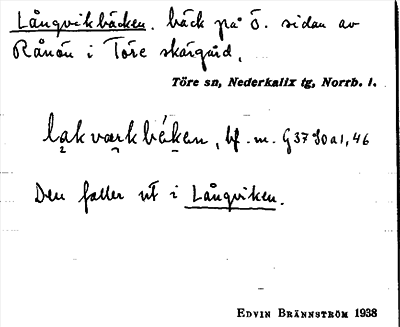 Långvikbäcken. bäck på ö. sidan av
Rånön i Töre skärgård.
Töre sn, Nederkalix tg, Norrb. l.
bf. m.
Den faller ut i Långviken.
EDVIN BRÄNNSTRÖM 1938